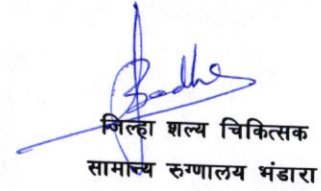 जिल्हा शल्य चिकित्सक
सामान्य रुग्णालय भंडारा